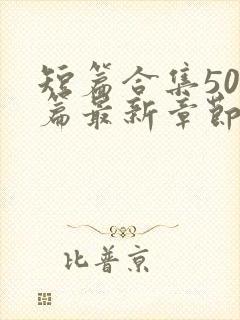 短篇合集50
篇最新章节
比普京